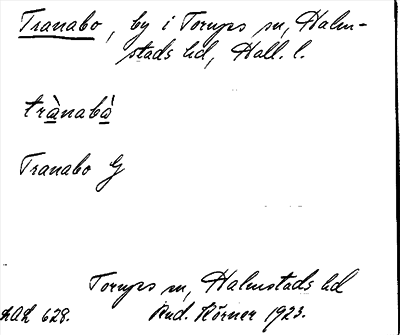 Tranabo, by i Torups sn, Halm-
stads hd, Hall. l.
trànabà
Tranabo G
Torups sn, Halmstads hd
LAL 628. Rud. Körner 1923.